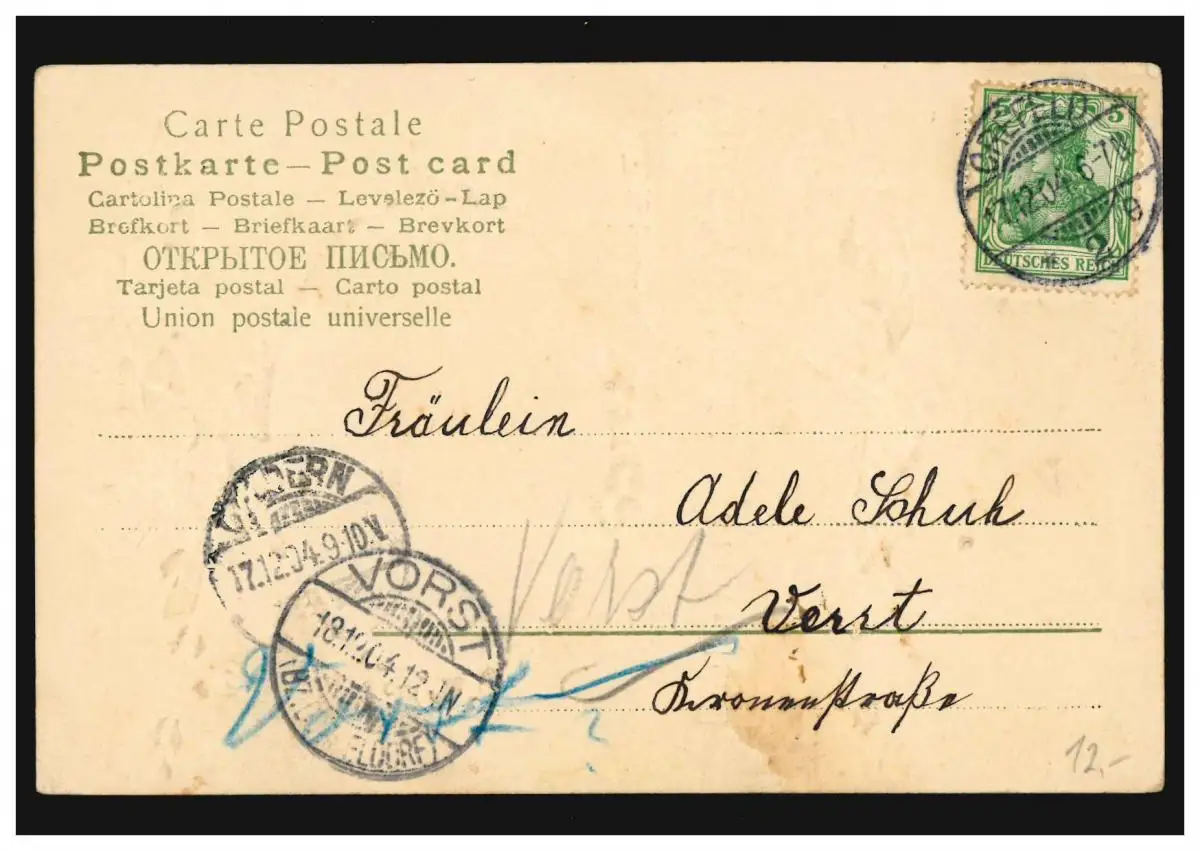 Carte Postale
Postkarte — Post card
Cartolina Postale — Levelező-Lap
Brefkort — Briefkaart — Brevkort
ОТКРЫТОЕ ПИСЬМО.
Tarjeta postal — Carto postal
Union postale universelle
5 5
CREFELD
17.12.04. 6-7N.
2 e
DEUTSCHES REICH
Fräulein
Adele Schuh
Verst
Vorst
Kronenstraße
17.12.04. 9-10.V.
VORST
18.12.04. 12-1N
12.-